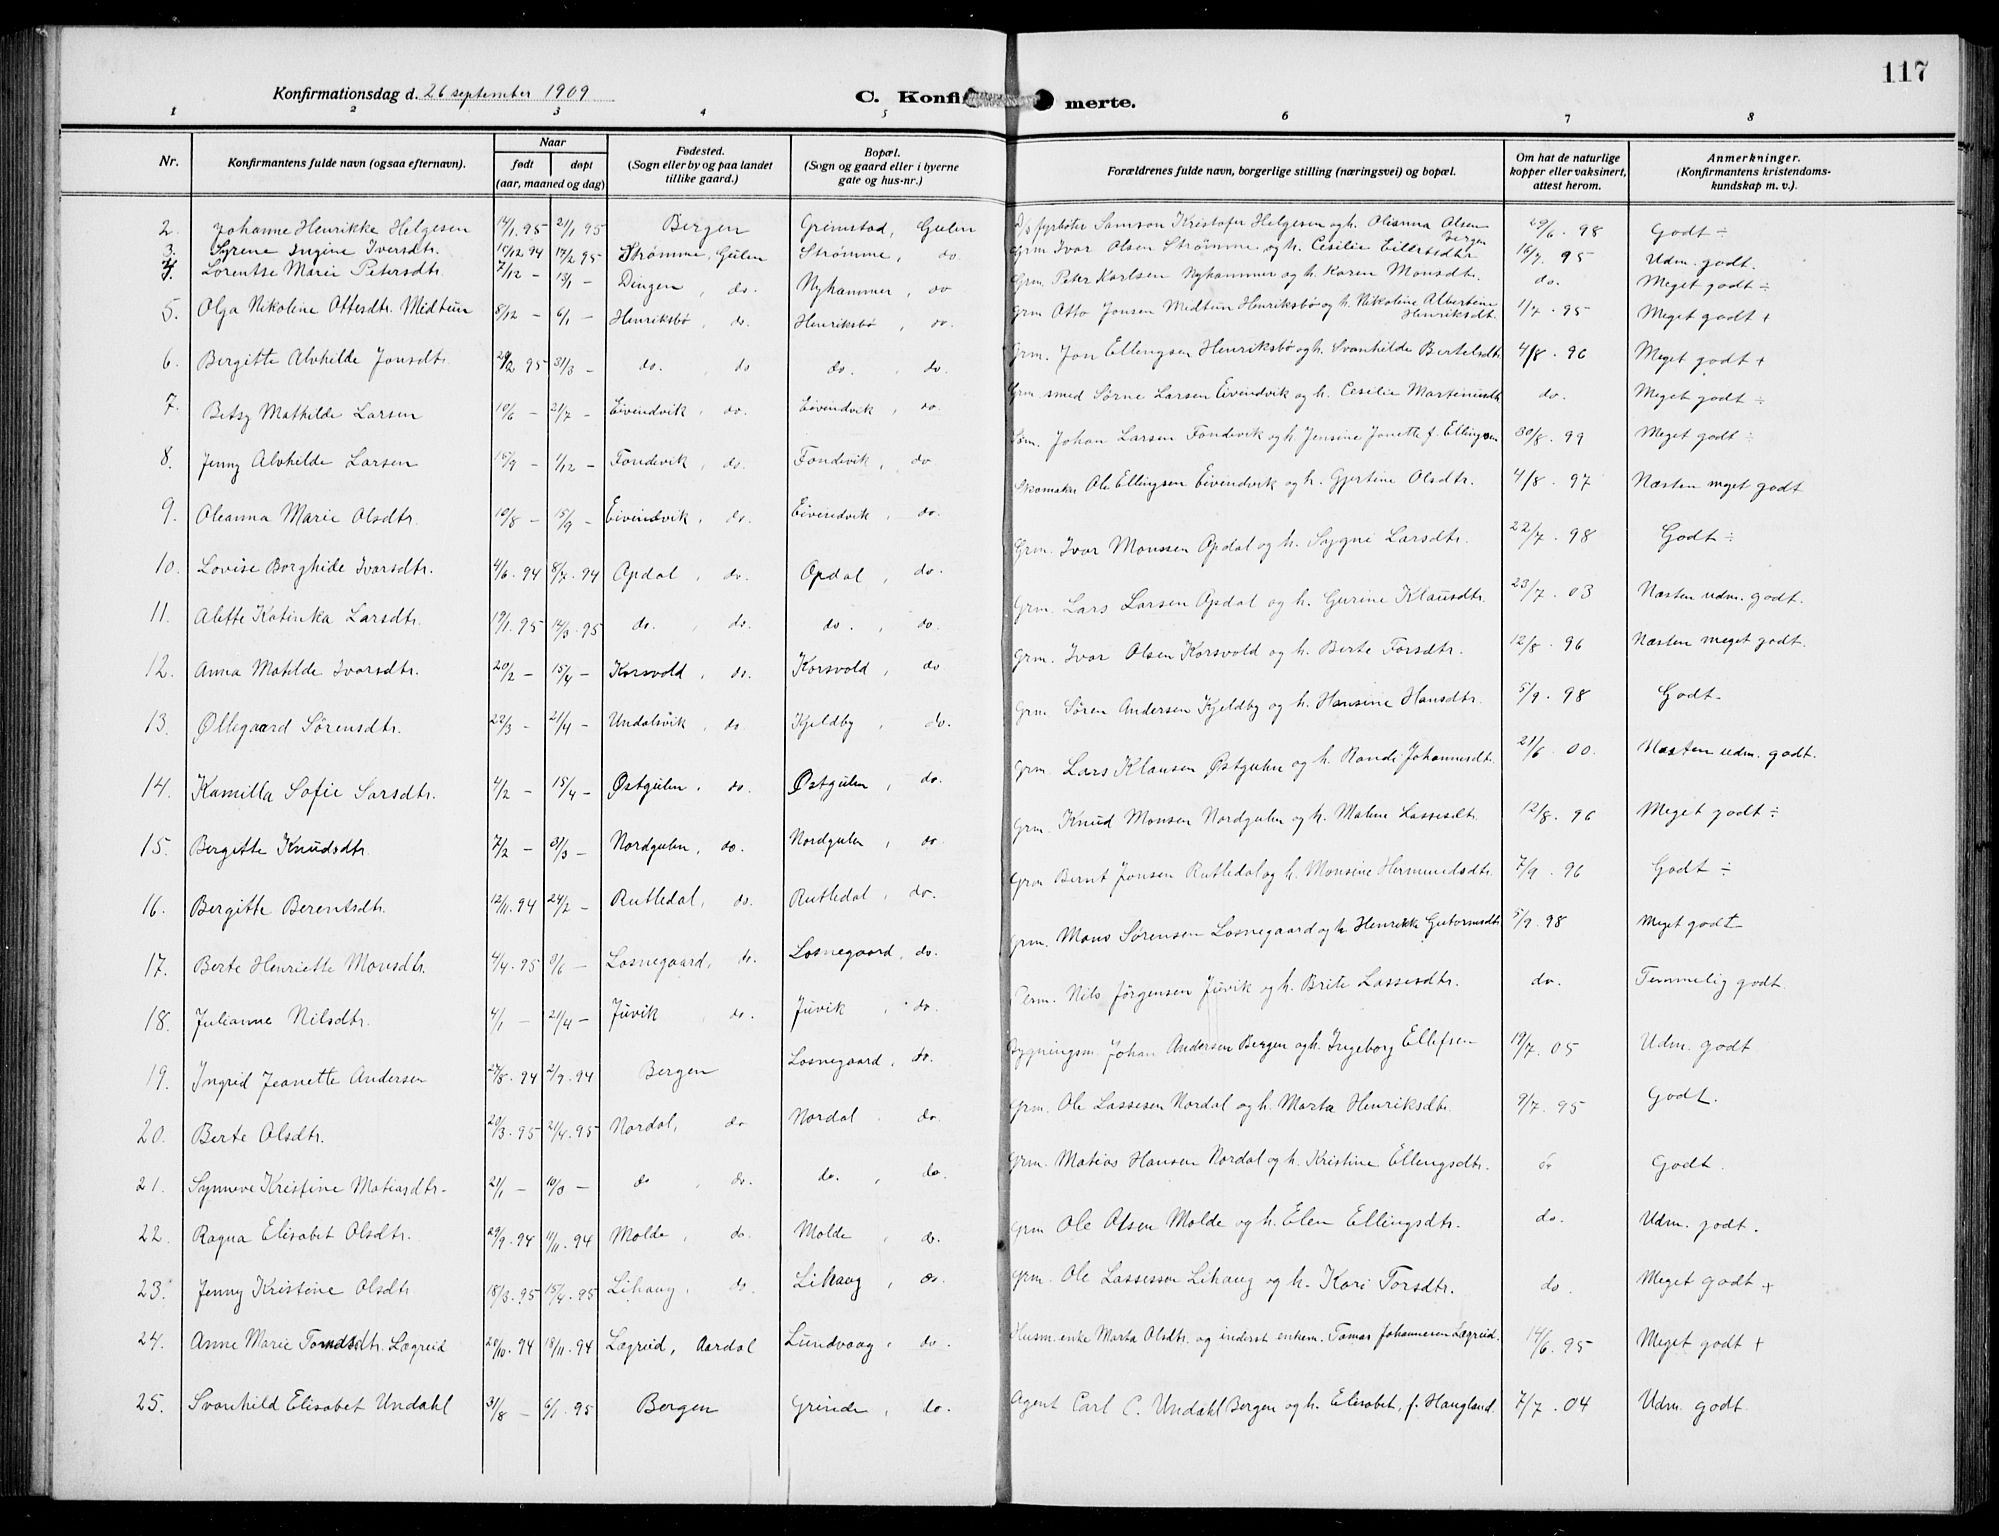 117
Konfirmationsdag d. 26 september 1909
C. Konfi merte.
1 2 3 4 5 6 7 8
Nr. Konfirmantens fulde navn (ogsaa efternavn). Naar født døpt (aar, maaned og dag) Fødested. (Sogn eller by og paa landet tillike gaard.) Bopæl. (Sogn og gaard eller i byerne gate og hus-nr.) Forældrenes fulde navn, borgerlige stilling (næringsvei) og bopæl. Om hat de naturlige kopper eller vaksinert, attest herom. Anmerkninger. (Konfirmantens kristendoms-kundskap m. v.).
2. Johanne Henrikke Helgesen 14/1 95 21/1 95 Bergen Grimstad, Gulen fyrbøter Samson Kristofer Helgesen og h. Olianna Olsen Bergen 29/6. 98 Godt ÷
3. Syrene Ingine Iversdtr. 15/12 94 17/2 95 Strømme, Gulen Strømme, do. Grm Ivar Olsen Strømme og h. Cesilie Eilertsdtr 16/7 95 Udm. godt.
4. Lorentse Marie Petersdtr. 7/12 – 13/1 – Dingen, do. Nyhammer, do Grm. Peter Karlsen Nyhammer og h. Karen Monsdtr. do. Meget godt ÷
5. Olga Nikoline Ottesdtr. Midtun 8/12 – 6/1 – Henriksbø, do. Henriksbø, do. Grm Otto Jonsen Midtun Henriksbø og h. Nikoline Albertine Henriksdt. 1/7. 95 Meget godt +
6. Bergitte Alvhilde Jonsdtr. 20/2 95 31/3 – do. , do do. , do. Grm. Jon Ellingsen Henriksbø og h. Svanhilde Bertelsdtr 4/8. 96 Meget godt +
7. Betsy Mathilde Larsen 10/6 – 21/7 – Eivendvik, do. Eivendvik, do. Grm. smed Sørne Larsen Eivendvik og h. Cesilie Martinusdt. do. Meget godt ÷
8. Jenny Alvhilde Larsen 15/9 – 1/12 – Fondevik, do. Fondevik, do Johan Larsen Fondevik og h. Jensine Jonette f. Ellingsen 30/8. 99 Meget godt ÷
9. Oleanna Marie Olsdtr. 10/8 – 15/9 – Eivendvik, do. Eivendvik, do. Skomaker Ole Ellingsen Eivendvik og h. Gjertine Olsdtr. 4/8. 97 Næsten meget godt
10. Lovise Borghide Ivarsdtr. 4/6. 94 8/7. 94 Opdal, do. Opdal, do. Grm. Ivar Monssen Opdal og h. Sygni Larsdtr. 22/7. 98 Godt ÷
11. Alette Katinka Larsdtr. 19/1. 95 14/3. 95 do. , do. do. , do. Grm. Lars Larsen Opdal og h. Gurine Klausdtr. 23/7. 03 Næsten udm. godt.
12. Anna Matilde Ivarsdtr. 20/2 – 15/4 – Korsvold, do. Korsvold, do Grm. Ivar Olsen Korsvold og h. Berte Torsdtr. 12/8. 96 Næsten meget godt.
13. Øllegaard Sørensdtr. 22/3 – 21/4 – Undalsvik, do Kjeldby, do. Grm Søren Andersen Kjeldby og h. Hansine Hansdtr. 5/9. 98 Godt –
14. Kamilla Sofie Larsdtr. 4/2 – 15/4 – Østgulen, do. Østgulen, do. Grm. Lars Klausen Østgulen og h. Randi Johannesdt. 21/6. 00. Næsten udm. godt.
15. Bergitte Knudsdtr. 7/2 – 31/3 – Nordgulen, do. Nordgulen, do. Grm. Knud Monsen Nordgulen og h. Malene Lassesdtr. 12/8. 96 Meget godt ÷
16. Bergitte Berentsdtr. 12/11. 94 24/2 – Rutledal, do. Rutledal, do. Grm Bernt Jonsen Rutledal og h. Monsine Hermundsdtr. 7/9. 96 Godt ÷
17. Berte Henriette Monsdtr. 4/4. 95 9/6 – Losnegaard, do. Losnegaard, do. Grm. Mons Sørensen Losnegaard og h. Henrikke Gutormsdt. 5/9. 98 Meget godt
18. Julianne Nilsdtr. 4/1 – 21/4 – Juvik , do. Juvik , do. Nils Jørgensen Juvik og h. Brite Lassesdtr. do. Temmelig godt.
19. Ingrid Jeanette Andersen 27/8. 94 2/9. 94 Bergen Losnegaard, do. Bygningsm. Johan Andersen Bergen og h. Ingeborg Ellefsen 19/7. 05 Udm. godt
20. Berte Olsdtr. 20/3. 95 21/4. 95 Nordal, do Nordal , do. Grm. Ole Lassesen Nordal og h. Marta Henriksdtr. 9/7. 95 Godt.
21. Synneve Kristine Matiasdtr. 21/1 – 10/3 – do , do. do. , do Grm. Matias Hansen Nordal og h. Kristine Ellingsdtr. do Godt.
22. Ragna Elisabet Olsdtr. 29/9. 94 11/11. 94 Molde , do. Molde , do. Grm Ole Olsen Molde og h. Elen Ellingsdtr. do. Udm. godt.
23. Jenny Kristine Olsdtr 18/3. 95 15/4. 95 Lihaug, do. Lihaug, do. Grm. Ole Lassesen Lihaug og h. Kari Torsdtr. do Meget godt +
24. Anne Marie Tomasdtr. Lægreid 20/10. 94 18/11. 94 Lægreid, Aardal Lundvaag, do. Husm. enke Marta Olsdtr. og inderst enkem. Tomas Johannesen Lægreid. 14/6. 95 Meget godt +
25. Svanhild Elisabet Undahl 31/8 – 6/1. 95 Bergen Grinde, do. Agent Carl C. Undahl Bergen og h. Elisabet, f. Haugland. 7/7. 04 Udm. godt